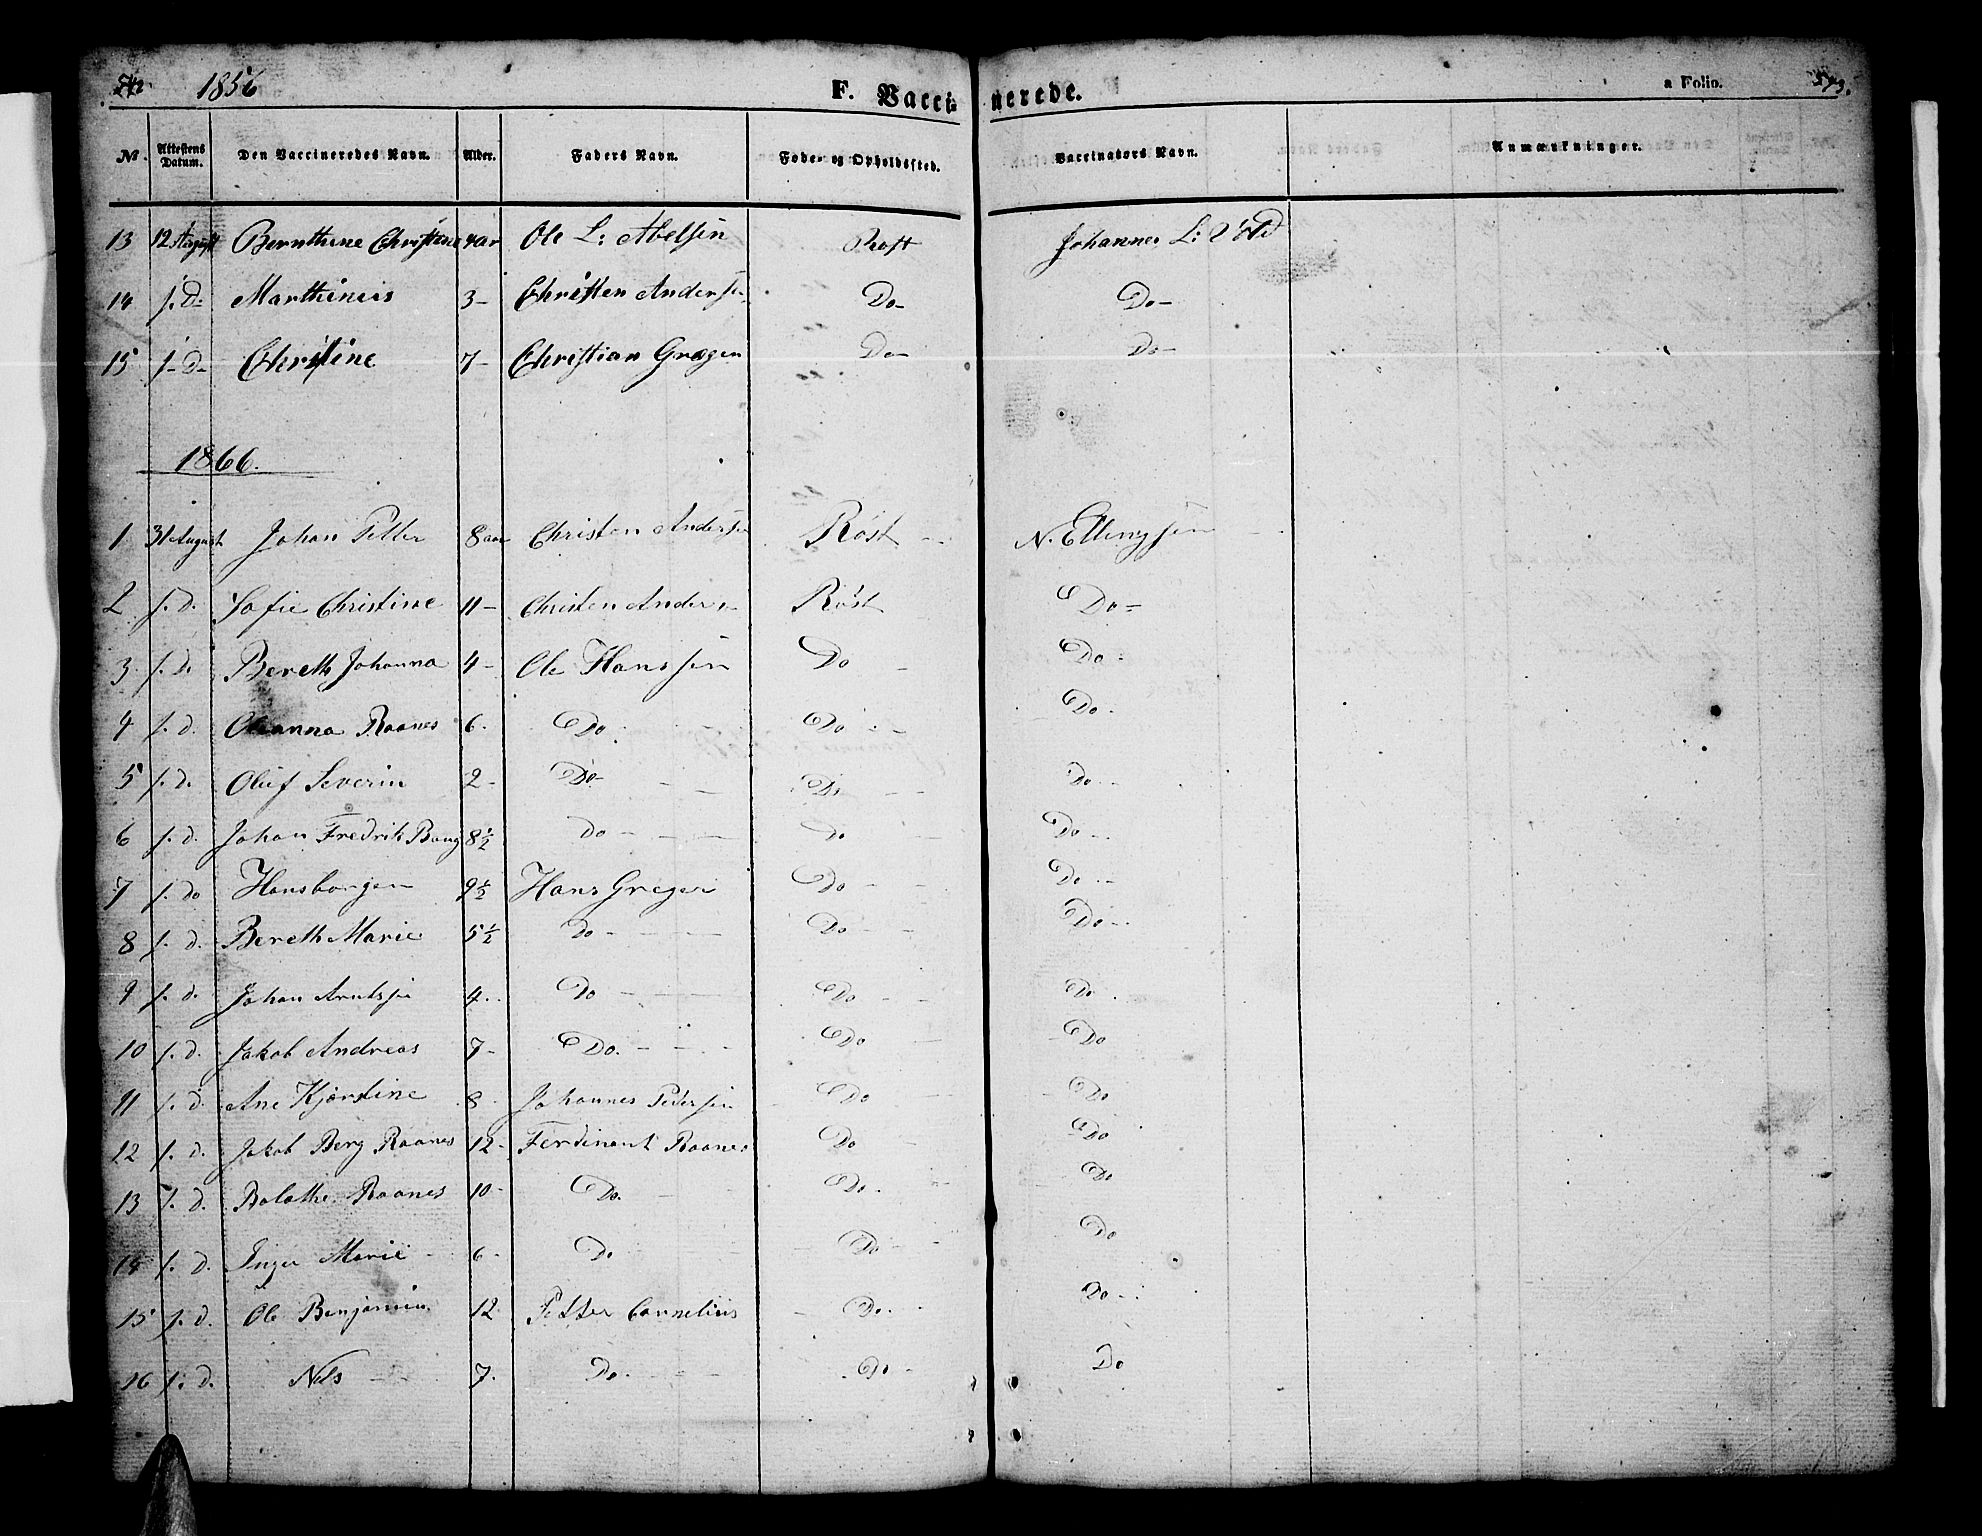 1856 F. Vaccinerede. a Folio. 573.
№. Attestens Datum. Den Vaccineredes Navn. Alder. Faders Navn. Føde- og Opholdssted. Vaccinators Navn. Anmærkninger.
13 12 August Bernthine Christine 4 aar Ole L: Abelsen Røst Johannes L:
14 s. D. Marthinus 3 - Christen Andersen Do - Do -
15 s. D. Christine 7 - Christian Greger Do - Do -
1866.
1 31 August Johan Petter 8 aar Christen Andersen Røst N. Ellingsen
2 s. d. Sofie Christine 11 - Christen Anders Røst Do -
3. s. D. Bereth Johanna 4 - Ole Hanssen Do Do -
4 s. d. Oleanna Raanes 6. Do. Do - Do -
5 s. d. Oluf Severin 2 - Do - Do Do -
6 s. d. Johan Fredrik Bang 8 ½ Do - Do Do -
7 s. do Hansborgen 9 ½ Hans Greger Do - Do -
8 s. d. Bereth Marie 5 ½ Do - Do - Do -
9 s. d. Johan 4. Do - Do - Do
10 s. d. Jakob Andreas 7 - Do. - Do - Do
11 s. d. Ane Kjerstine 8 - Johannes Pedersen Do Do
12 s. d. Jakob Berg Raanes 12 - Ferdinant Raanes Do Do
13 s. d. Raanes 10 - Do. Do. Do
14 s. d. Inger Marie - 6 - Do Do - Do
15 s. d. Ole Benjamin 12 Petter Cornelius Do. Do -
16 s. d. Nils - 7. Do. - Do - Do